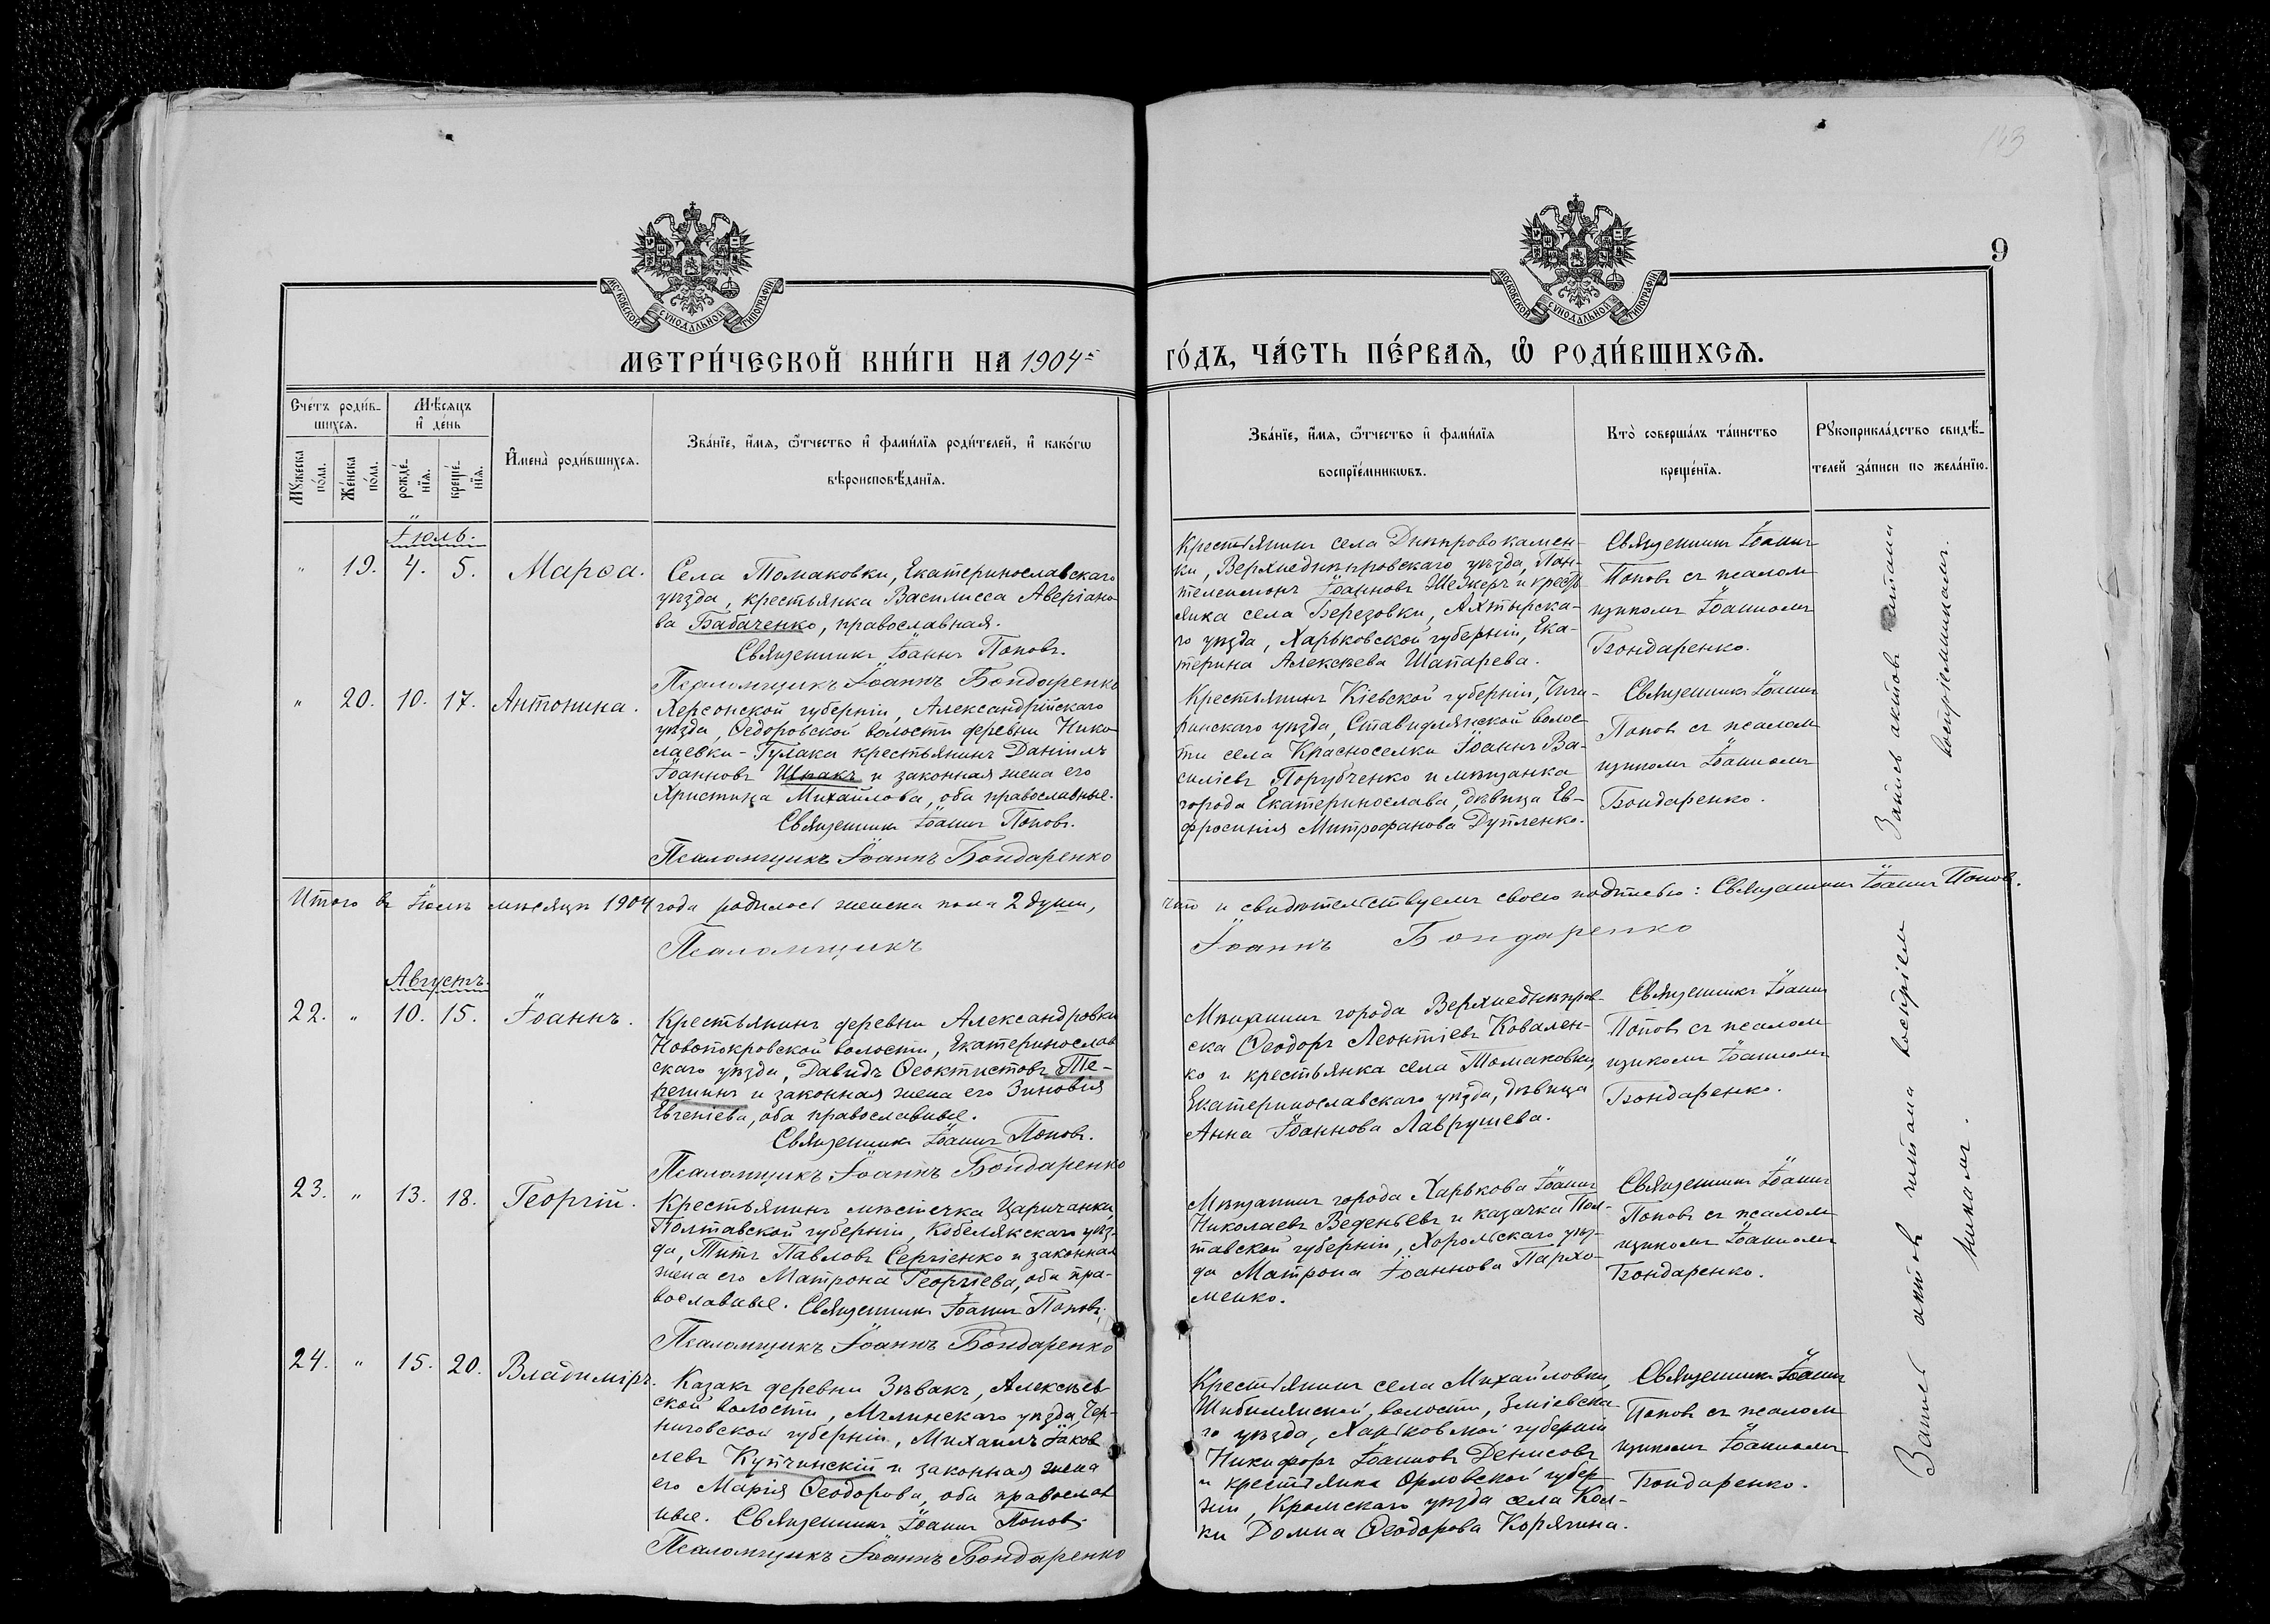 113
9
МОСКОВСКОЙ СѴНОДАЛЬНОЙ ТИПОГРАФІИ
МОСКОВСКОЙ СѴНОДАЛЬНОЙ ТИПОГРАФІИ
МЕТРИ́ЧЕСКОЙ КНИ́ГИ НА 1904й
ГО́ДЪ, ЧА́СТЬ ПЕ́РВАѦ, Ѽ РОДИ́ВШИХСѦ.
Сче́тъ роди́в-
шихсѧ.
Мѣ́сѧцъ
и҆ де́нь
Мꙋ́жеска
по́ла.
Же́нска
по́ла.
рожде́-
нїѧ.
креще́-
нїѧ.
И҆мена̀ роди́вшихсѧ.
Зва́нїе, и҆́мѧ, ѻ҆́тчество и҆ фами́лїѧ роди́телей, и҆ како́гѡ
вѣроисповѣ́данїѧ.
Зва́нїе, и҆́мѧ, ѻ҆́тчество и҆ фами́лїѧ
воспрїе́мникѡвъ.
Кто̀ соверша́лъ та́инство
креще́нїѧ.
Рꙋкоприкла́дство свидѣ́-
телей за́писи по жела́нїю.
Іюль.
" 19. 4. 5. Марѳа.
Села Томаковки, Екатеринославскаго
уѣзда, крестьянка Василисса Аверіано-
ва Бабаченко, православная.
Священникъ Іоаннъ Поповъ.
Псаломщикъ Іоаннъ Бондаренко
Крестьянинъ села Днѣпровокамен-
ки, Верхнеднѣпровскаго уѣзда, Пан-
телеимонъ Іоанновъ Шекеръ и кресть-
янка села Березовки, Ахтырска-
го уѣзда, Харьковской губерніи, Ека-
терина Алексѣева Шапарева.
Священникъ Іоаннъ
Поповъ съ псалом
щикомъ Іоанномъ
Бондаренко.
" 20. 10. 17. Антонина.
Херсонской губерніи, Александрійскаго
уѣзда, Ѳедоровской волости деревни Нико-
лаевки-Гулака крестьянинъ Даніилъ
Іоанновъ Шпакъ и законная жена его
Христина Михайлова, оба православные.
Священникъ Іоаннъ Поповъ.
Псаломщикъ Іоаннъ Бондаренко
Крестьянинъ Кіевской губерніи, Чиги-
ринскаго уѣзда, Ставидлянской волос-
ти села Красноселки Іоаннъ Ва-
силіевъ Порубченко и мѣщанка
города Екатеринослава, дѣвица Ев-
фросинія Митрофанова Дупленко.
Священникъ Іоаннъ
Поповъ съ псалом
щикомъ Іоанномъ
Бондаренко.
Запись актовъ читана
воспріемникамъ.
Итого въ Іюлѣ мѣсяцѣ 1904 года родилось женска пола 2 души,
что и свидѣтельствуемъ своею подписью: Священникъ Іоаннъ Поповъ.
Псаломщикъ Іоаннъ Бондаренко
Августъ.
22. " 10. 15. Іоаннъ.
Крестьянинъ деревни Александровки
Новопокровской волости, Екатеринослав
скаго уѣзда, Давидъ Ѳеоктистовъ Те-
решинъ и законная жена его Зиновія
Евгеніева, оба православные.
Священникъ Іоаннъ Поповъ.
Псаломщикъ Іоаннъ Бондаренко
Мѣщанинъ города Верхнеднѣпров-
ска Ѳеодоръ Леонтіевъ Ковален-
ко и крестьянка села Томаковки,
Екатеринославскаго уѣзда, дѣвица
Анна Іоаннова Лаврушева.
Священникъ Іоаннъ
Поповъ съ псалом
щикомъ Іоанномъ
Бондаренко.
23. " 13. 18. Георгій.
Крестьянинъ мѣстечка Царичанки
Полтавской губерніи, Кобелякскаго уѣз-
да, Титъ Павловъ Сергіенко и законная
жена его Матрона Георгіева, оба пра-
вославные. Священникъ Іоаннъ Поповъ.
Псаломщикъ Іоаннъ Бондаренко
Мѣщанинъ города Харькова Іоаннъ
Николаевъ Веденьевъ и казачка Пол-
тавской губерніи, Хорольскаго уѣз-
да Матрона Іоаннова Пархо-
менко.
Священникъ Іоаннъ
Поповъ съ псалом
щикомъ Іоанномъ
Бондаренко.
24. " 15. 20. Владиміръ.
Казакъ деревни Зѣвакъ, Алексѣев
ской волости, Мглинскаго уѣзда, Чер-
ниговской губерніи, Михаилъ Іаков
левъ Купчинскій и законная жена
его Марія Ѳеодорова, оба православ
ные. Священникъ Іоаннъ Поповъ.
Псаломщикъ Іоаннъ Бондаренко
Крестьянинъ села Михайловки,
волости, Зміевска-
го уѣзда, Харьковской губерніи
Никифоръ Іоанновъ Денисовъ
и крестьянка Орловской губер
ніи, Кромскаго уѣзда села Кол-
ки Домна Ѳеодорова Корягина.
Священникъ Іоаннъ
Поповъ съ псалом
щикомъ Іоанномъ
Бондаренко.
Запись актовъ читана воспріем
никамъ.